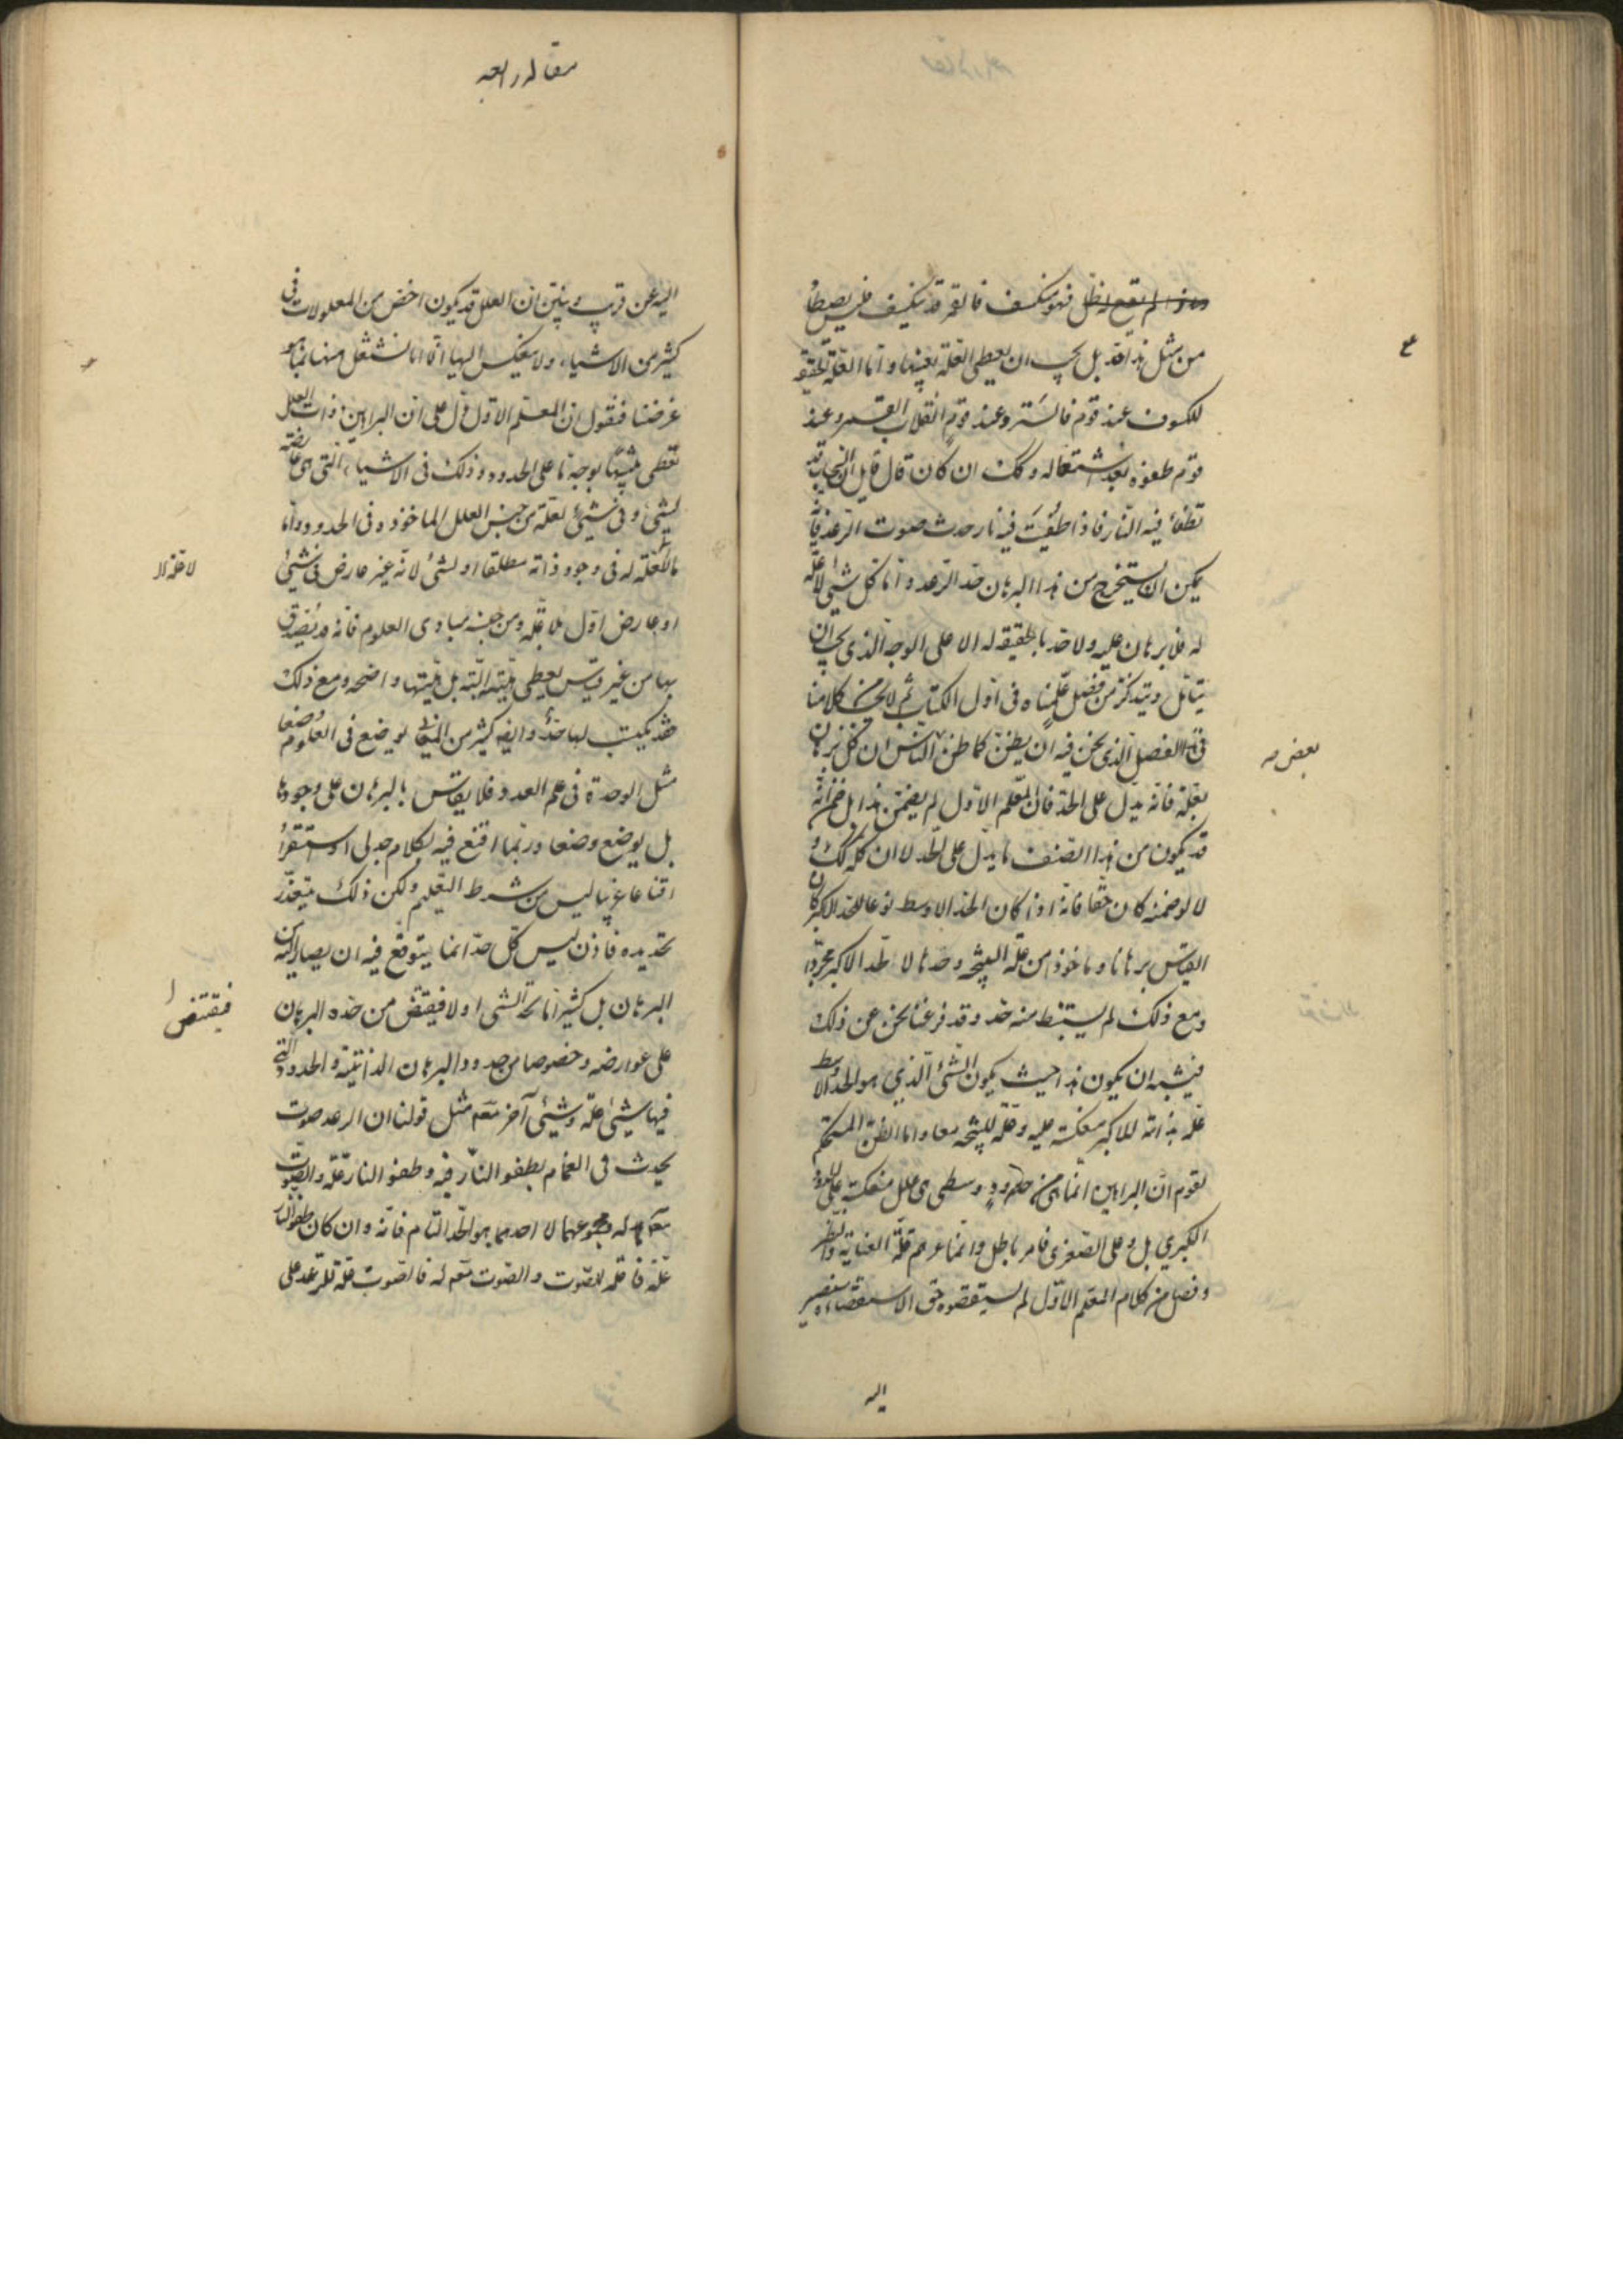 فهو منكسف فالقمر قد ينكسف فليس يصطاد
من مثل هذا حد بل يجب ان يعطى العلة بعينها واما العلة الحقيقية
للكسوف عند قوم فالستر وعند قوم انقلاب القمر وعند
قوم طفوه بعد اشتعاله وكك ان كان قال قايل ان السحاب قد
تطفأ فيه النار فاذا طفيت فيه نار حدث صوت الرعد
يمكن ان يستخرج من هذا البرهان حد الرعد واما كل شئ لا علة
له فلا برهان عليه ولا حد بالحقيقة له الا على الوجه الذى يجب ان
يتأمل ويتذكر من فضل علمناه فى اول الكتاب ثم لا يجب من كلامنا
فى الفصل الذى نحن فيه ان يظن كما ظن الناس ان كل برهان
بعلة فانه يدل على الحد فان المعلم الاول لم يضمن هذا بل ضمن انه
قد يكون من هذا الصنف ما يدل على الحد لا ان كله كك و
لا لو ضمنه كان حقا فانه اذا كان الحد الاوسط نوعا للحد الاكبر كان
القياس برهانا وماخوذا من علة النتيجة وحدها لا الحد الاكبر مجردا
ومع ذلك لم يستنبط منه حد وقد فرغنا نحن عن ذلك
فيشبه ان يكون هذا حيث يكون الشئ الذى هو الحد الاوسط
علة بذاته للاكبر منعكسة عليه وعلة للنتيجة معا واما الظن المستحكم
لقوم ان البراهين انما هى من حدود وسطى هى علل منعكسة على
الكبرى بل وعلى الصغرى فامر باطل وانما غرهم قلة العناية والنظر
وفصل من كلام المعلم الاول لم يستقصوه حق الاستقصاء
اليه
بعض
مقاله رابعه
اليه عن قريب ونبين ان العلل قد يكون اخص من المعلولات فى
كثير من الاشياء ولا ينعكس اليها اما انا نشتغل منها بما هو
غرضنا فنقول ان المعلم الاول دل على ان البراهين ذوات العلل
تعطى بوجه ما على الحدود وذلك فى الاشياء التى هى عارضة
لشئ وفى شئ لعلة من جنس العلل الماخوذه فى الحدود واما
ما لا علة له فى وجود ذاته مطلقا او لشئ لانه غير عارض فى شئ
او عارض اول بلا علة ومن جنسه مبادى العلوم فانه قد يصدق
بها من غير قياس يعطى لميته البتة بل لميتها واضحه ومع ذلك
فقد يكتب لها حد وايضا كثير من المعانى يوضع فى العلوم وضعا
مثل الوحدة فى علم العدد فلا يقاس بالبرهان على وجودها
بل يوضع وضعا وربما اقنع فيه بكلام جدلى او استقراء
اقناعا غريبا ليس من شرط التعليم ولكن ذلك يتعذر
تحديده فاذن ليس كل حد انما يتوقع فيه ان يصار اليه من
البرهان بل كثيرا ما يحد الشى اولا فيقتنص من حده البرهان
على عوارضه وخصوصا من حدود البرهان الذاتية والحدود التى
فيها شئ علة وشئ آخر متمم مثل قولنا ان الرعد صوت
يحدث فى الغمام لطفو النار فيه وطفو النار علة والصوت
متمم له ومجموعهما لا احدهما هو الحد التام فانه وان كان طفو النار
علة فاعلة للصوت والصوت متمم له فالصوت علة للرعد على
لا علة له
فيقتنص